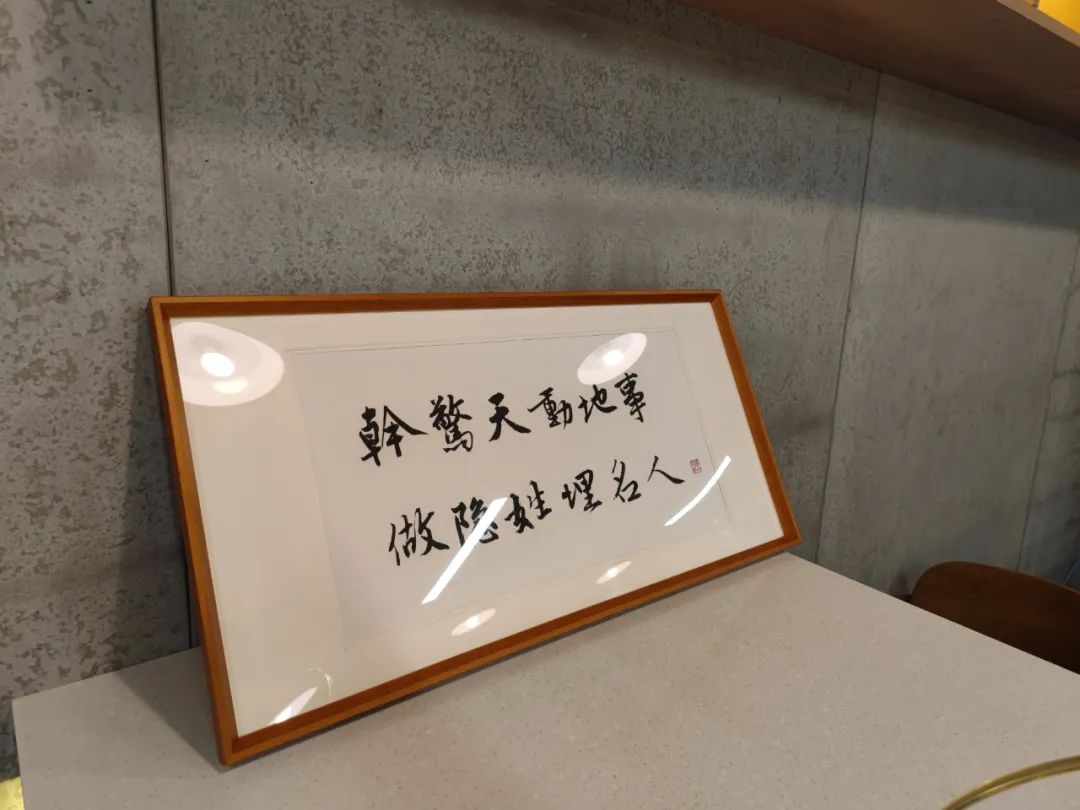 幹驚天動地事
做隐姓埋名人